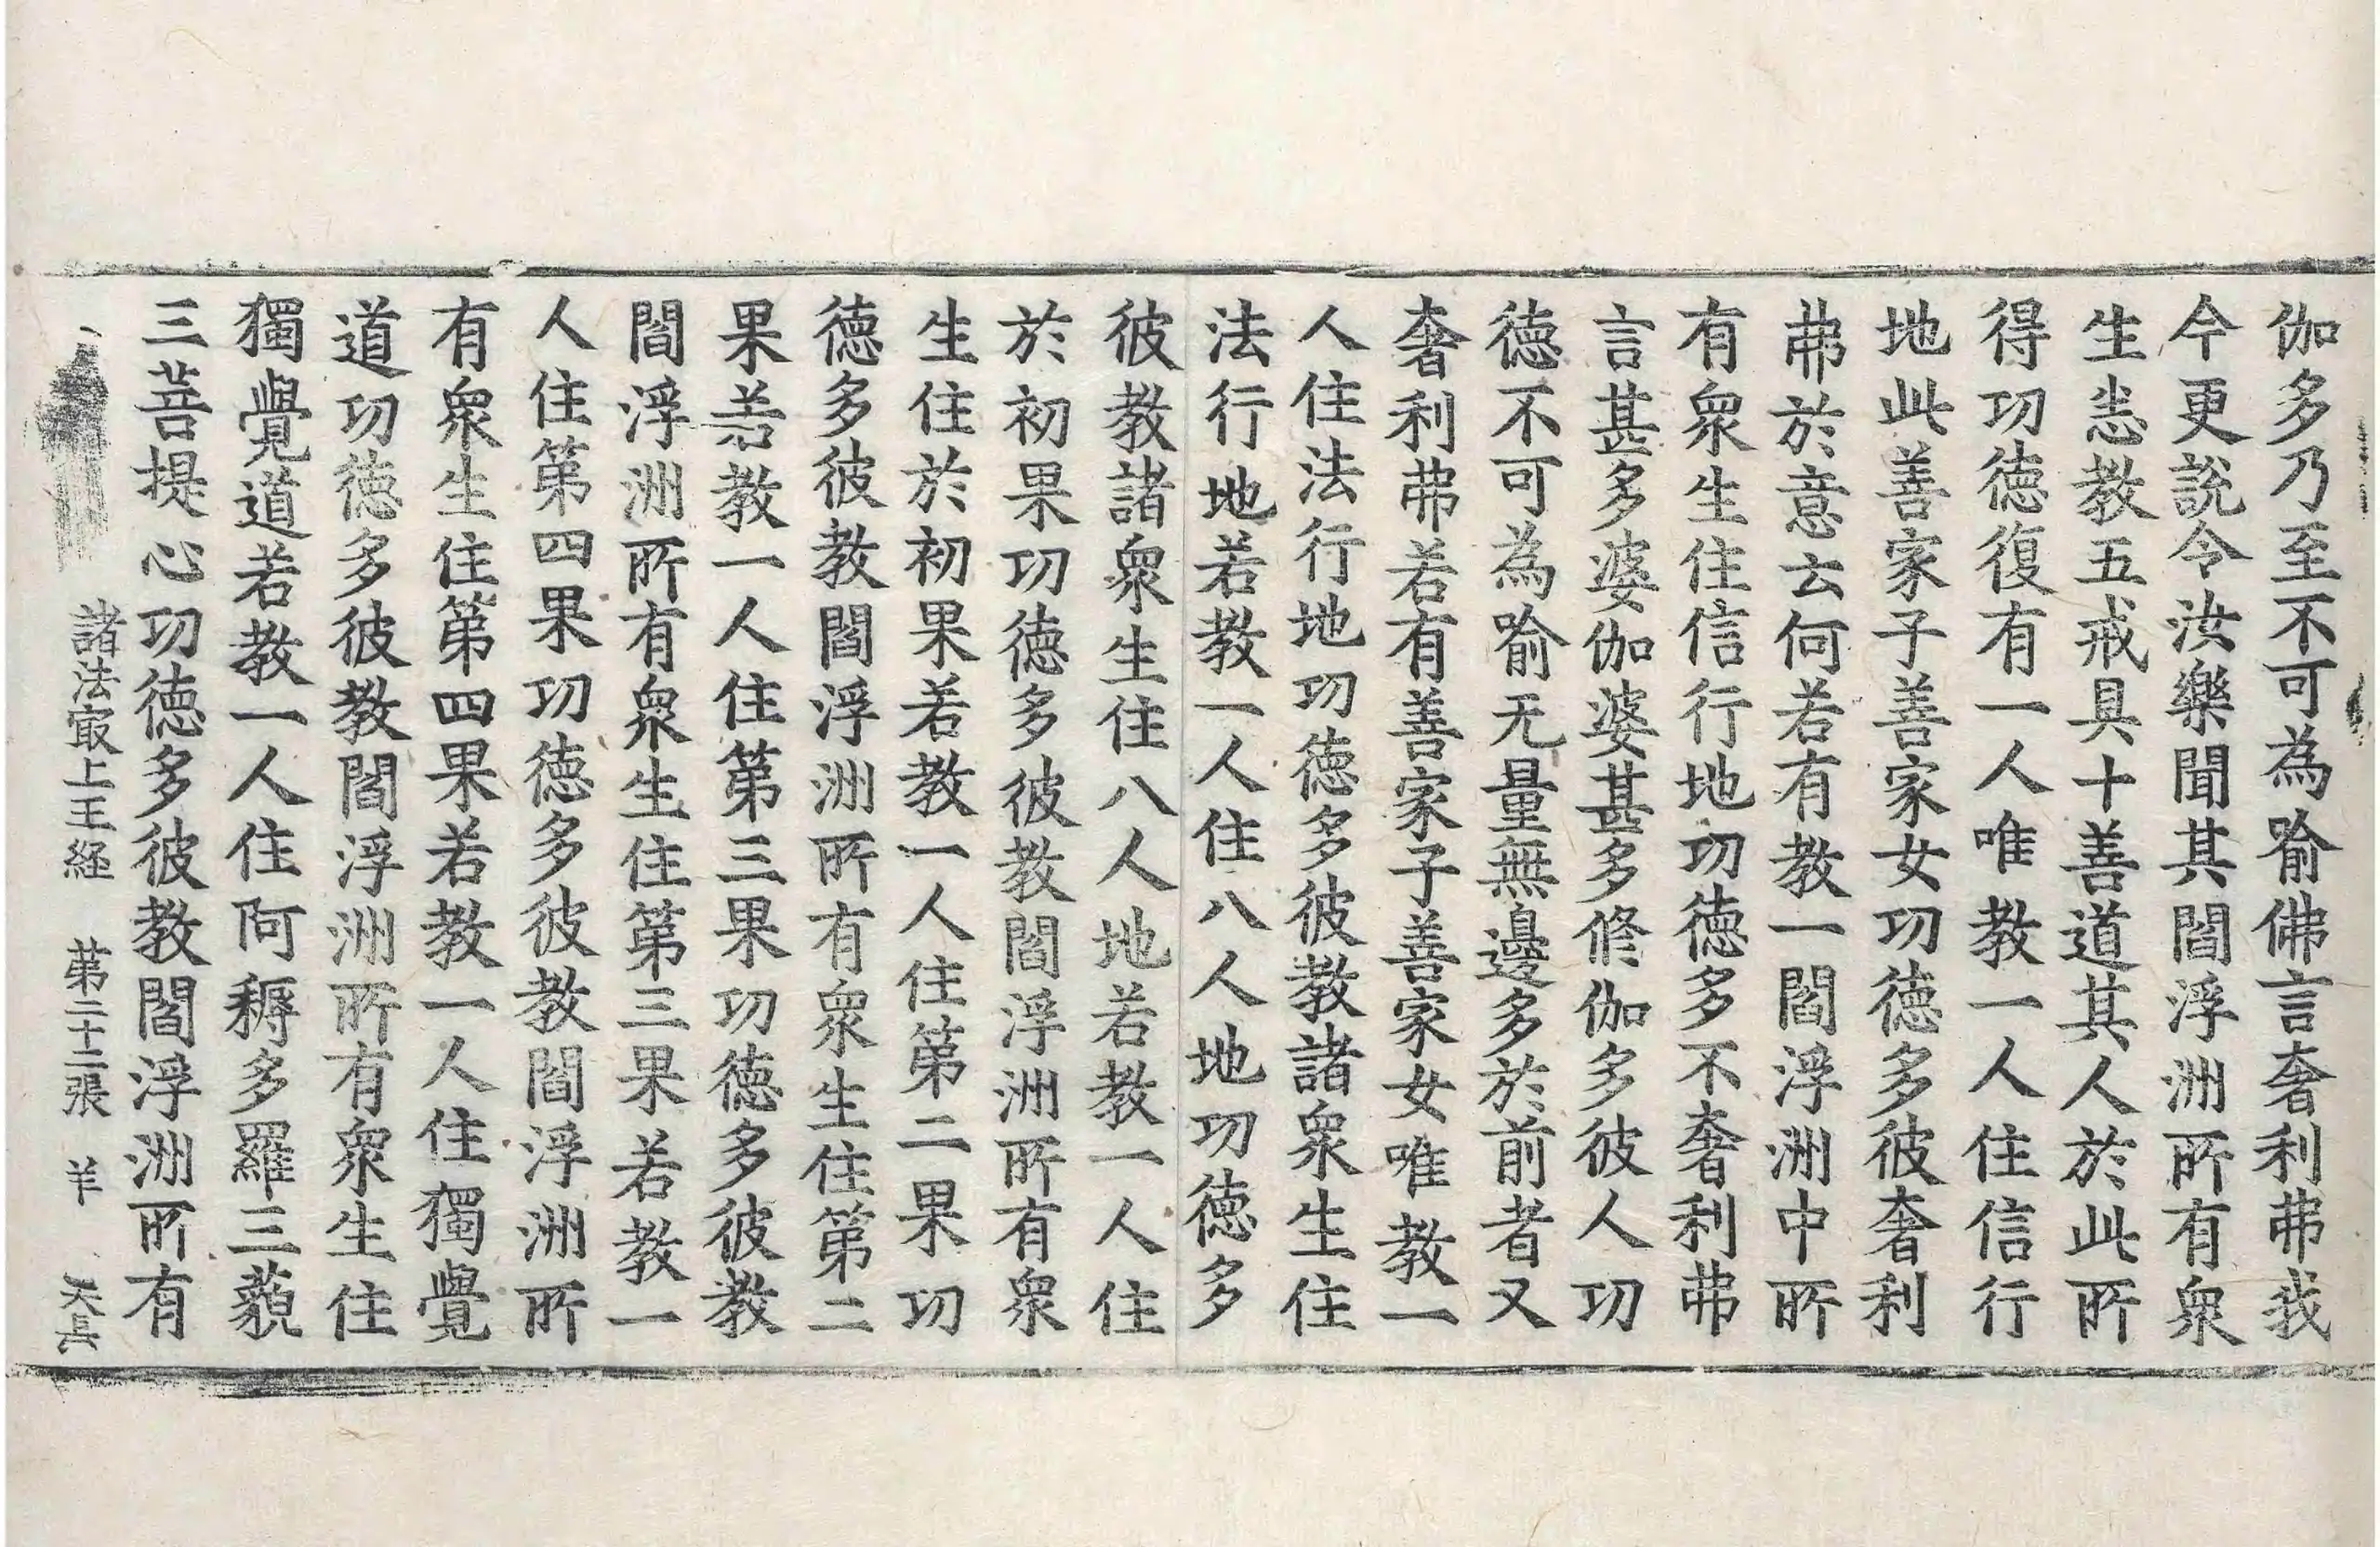 伽多乃至不可為喻佛言奢利弗我
今更說令汝樂聞其閻浮洲所有衆
生恙教五戒具十善道其人於此所
得功徳復有一人唯教一人住信行
地此善家子善家女功徳多彼奢利
弗於意云何若有教一閻浮洲中所
有衆生住信行地功徳多不奢利弗
言甚多婆伽婆甚多修伽多彼人功
徳不可為喻无量無邊多於前者又
奢利弗若有善家子善家女唯教一
人住法行地功徳多彼教諸衆生住
法行地若教一人住八人地功徳多
彼教諸衆生住八人地若教一人住
於初果功徳多彼教閻浮洲所有衆
生住於初果若教一人住第二果功
徳多彼教閻浮洲所有衆生住第二
果若教一人住第三果功徳多彼教
閻浮洲所有衆生住第三果若教一
人住第四果功徳多彼教閻浮洲所
有衆生住第四果若教一人住獨覺
道功徳多彼教閻浮洲所有衆生住
獨覺道若教一人住阿耨多羅三藐
三菩提心功徳多彼教閻浮洲所有
諸法㝡上王経 第二十二張 羊 天長